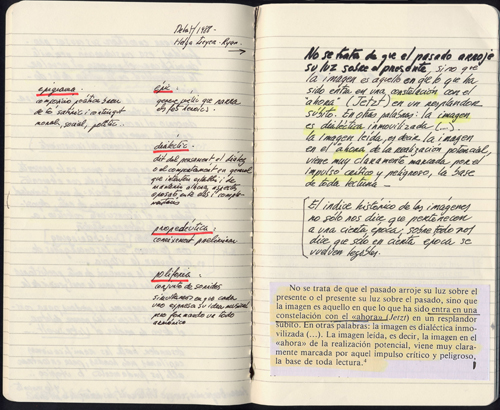 epigrama:
composición poética breve
moral, social, política.
épic:
gènere poètic que narra
dialèctic:
propedèutica:
coneixement preliminar
polifonia:
conjunto de sonidos
simultáneos en que cada
uno expresa su idea musical
pero formando un todo
armónico
No se trata de que el pasado arroje
su luz sobre el presente, sino que
la imagen es aquello en que lo que ha
sido entra en una constelación con el
"ahora" (Jetzt) en un resplandor
súbito. En otras palabras: la imagen
es dialéctica inmovilizada (...).
la imagen leída, es decir, la imagen
en el "ahora" de la realización potencial,
viene muy claramente marcada por el
impulso crítico y peligroso, la base
de toda lectura.
El índice histórico de las imágenes
no sólo nos dice que pertenecen
a una cierta época; sobre todo nos
dice que sólo en cierta época se
vuelven legibles.
No se trata de que el pasado arroje su luz sobre el
presente o el presente su luz sobre el pasado, sino que
la imagen es aquello en que lo que ha sido entra en una
constelación con el «ahora» (Jetzt) en un resplandor
súbito. En otras palabras: la imagen es dialéctica inmo-
vilizada (...). La imagen leída, es decir, la imagen en el
«ahora» de la realización potencial, viene muy clara-
mente marcada por aquel impulso crítico y peligroso,
la base de toda lectura.⁴